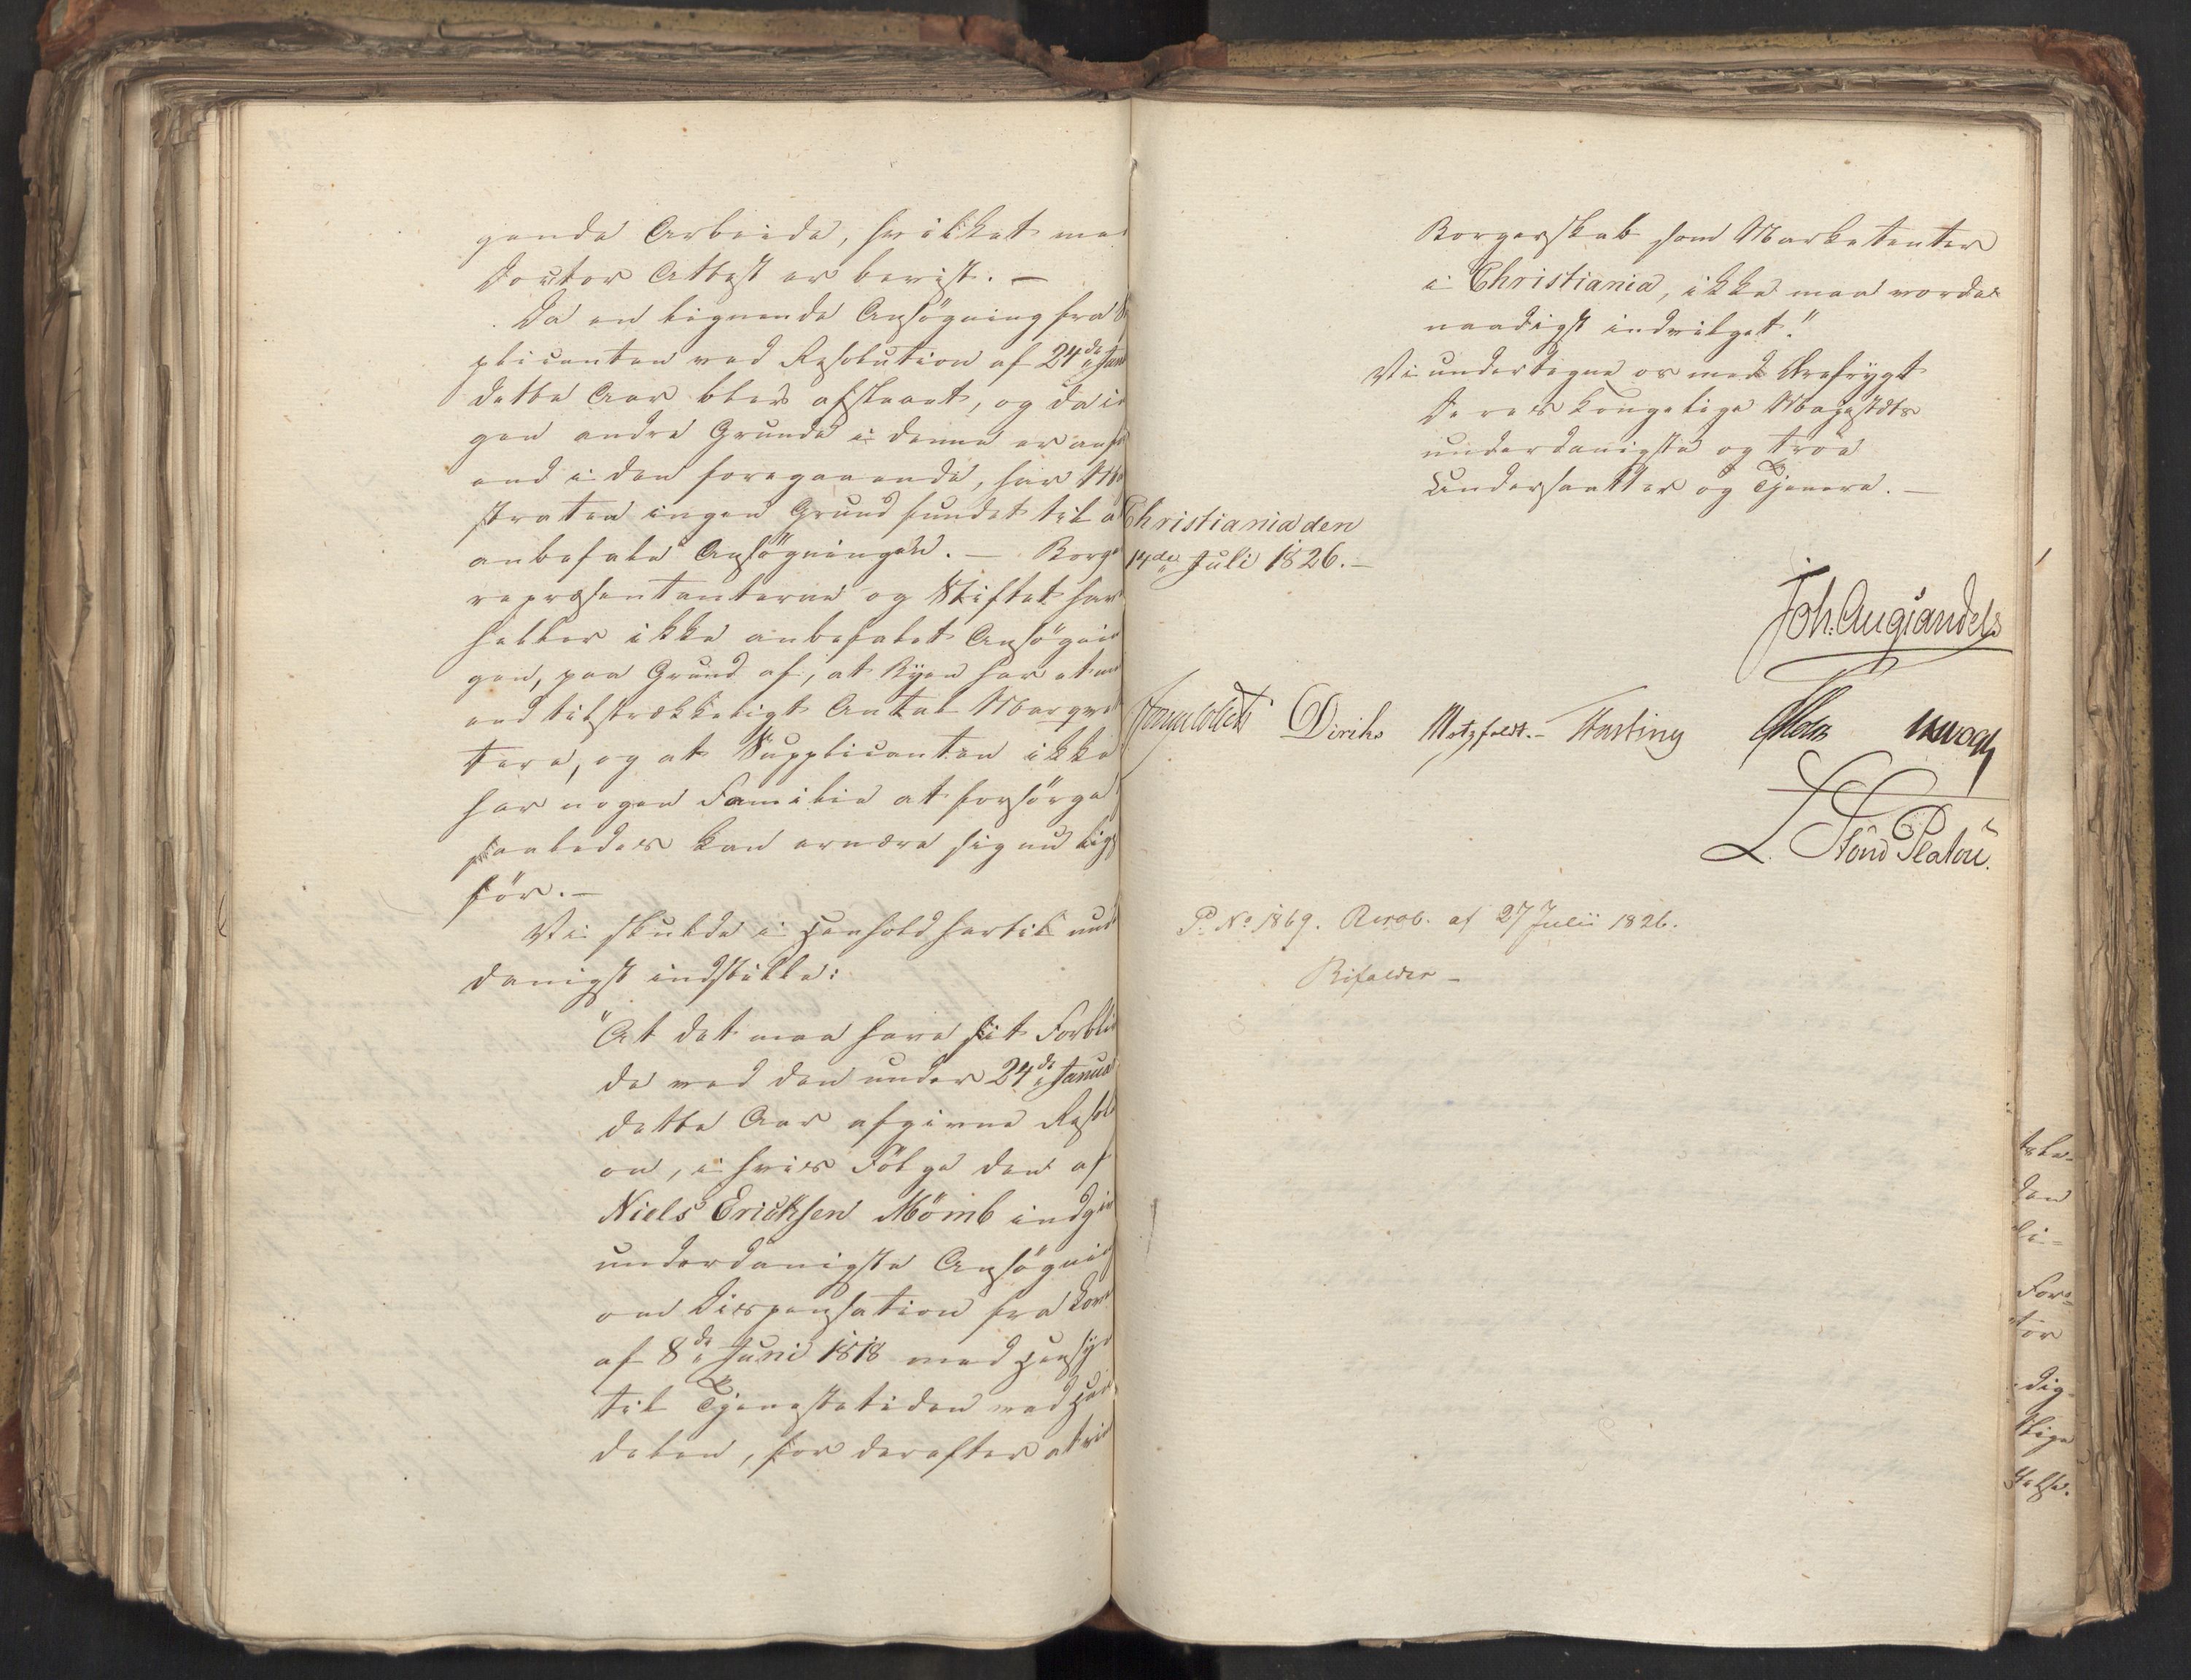 gende Arbeide, hvilket med
Doctor Attest er bevist. —
Da en lignende Ansögning fra S
plicanten ved Resolution af 24de Jan
dette Aar blev afslaaet, og da in
gen andre Grunde i denne er anf
end i den foregaaende, har Ma
straten ingen Grund fundet til a
anbefale Ansögningen. — Borge
repræsentanterne og Stiftet har
heller ikke anbefalet Ansögnin
gen, paa Grund af, at Byen har et me
end tilstrækkeligt Antal Marqve
tere, og at Supplicanten ikke
har nogen Familie at forsörge
saaledes kan ernære sig nu lig
för. —
Vi skulde i Henhold hertil und
danigst indstille:
"At det maa have sit Forbli
de ved den under 24de Janua
dette Aar afgivne Resol
on, i hvis Fölge den af
Niels Ericksen Möinb indgi
underdanigste Ansögnin
om Dispensation fra Lov
af 8de Juni 1818 med Hensyn
til Tjenestetiden ved Han
delen, for derefter at vin
Borgerskab som Marketenter
i Christiania, ikke maa vorde
naadigst indvilget."
Vi undertegne os med Ærefrygt
Deres Kongelige Majestæts
underdanigste og troe
Undersaatter og Tjenere. —
Christiania den
14de Juli 1826. —
Joh. Aug Sandels
Diriks Motzfeldt. —
L. Stoud Platou.
P. No 1869. Resol. af 27 Julii 1826.
Bifaldes —